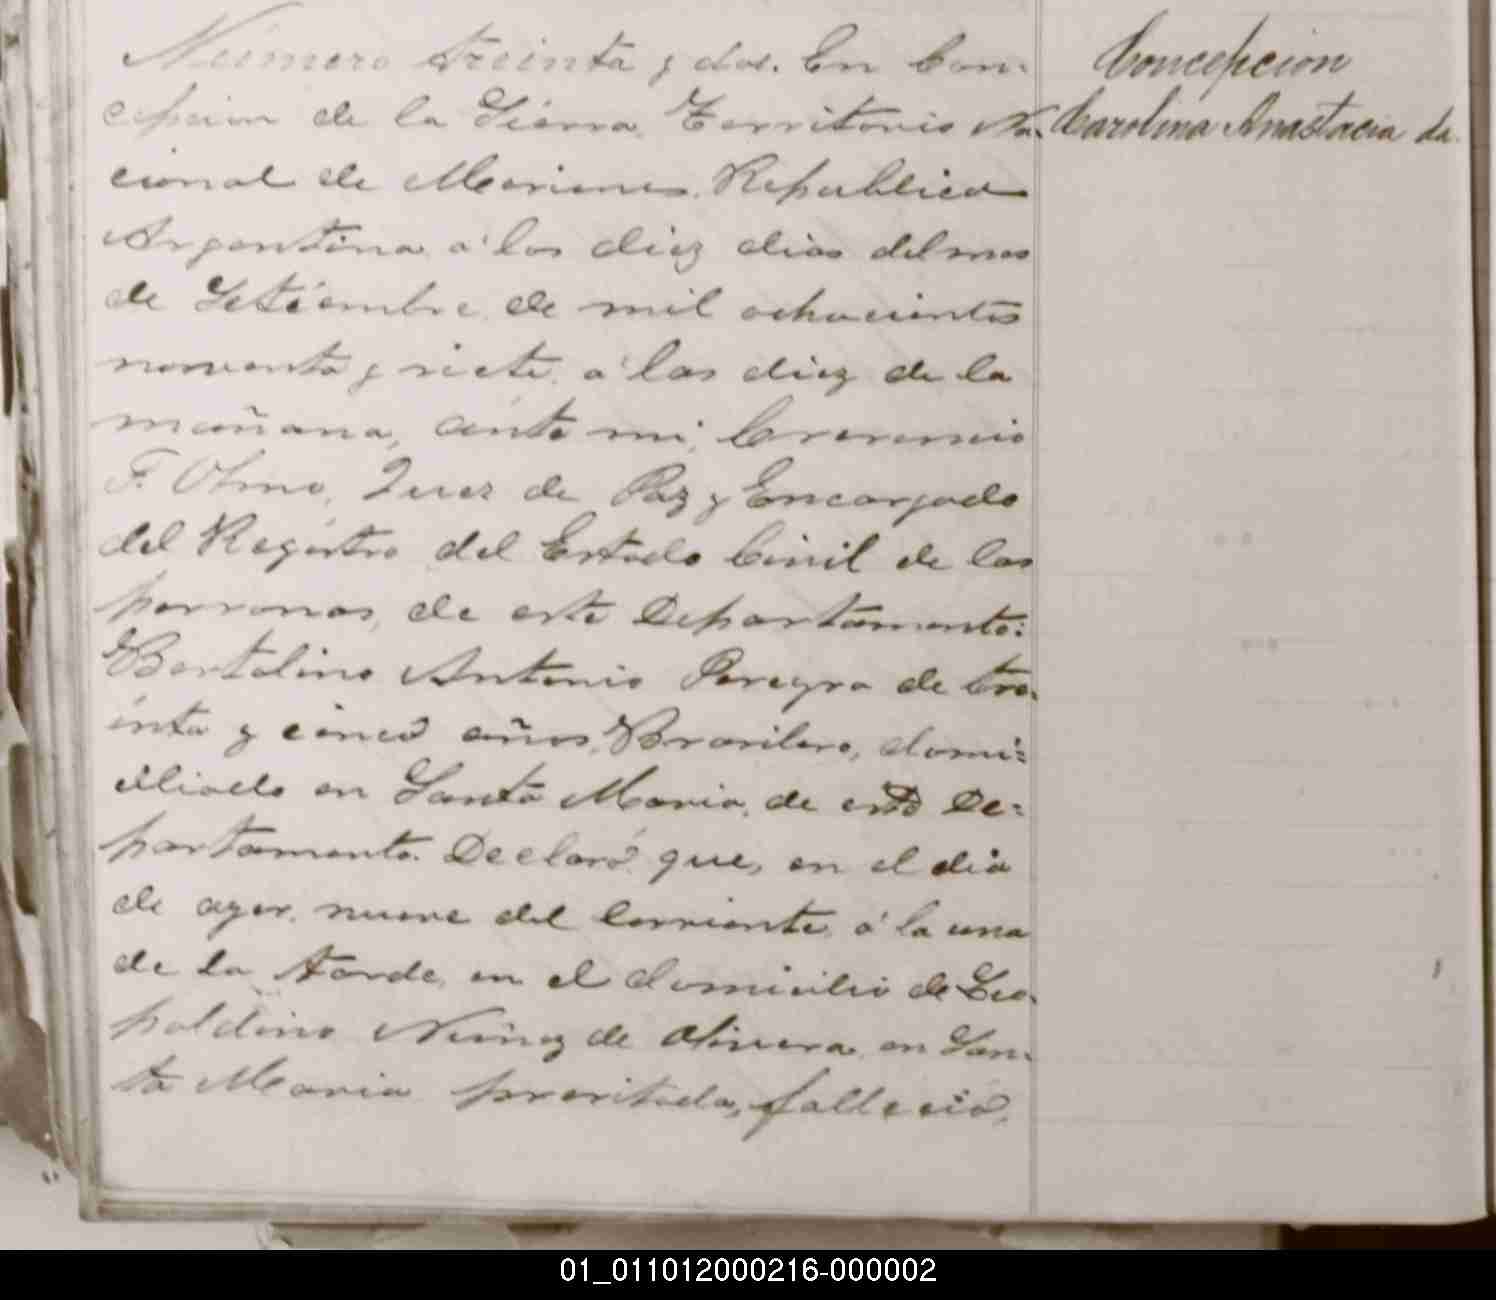 Número treinta y dos. En Con-
cepcion de la Sierra, Territorio Na-
cional de Misiones, Republica
Argentina, á los diez dias del mes
de Setiembre de mil ochocientos
noventa y siete, á las diez de la
mañana, ante mi,
F. Olmo, Juez de Paz y Encargado
del Registro del Estado Civil de las
personas, de este Departamento:
Bertolino Antonio Pereyra de tre-
inta y cinco años, Brasilero, domi-
ciliado en Santa Maria, de este De-
partamento. Declaró que, en el dia
de ayer, nueve del corriente, á la una
de la tarde, en el domicilio de Leo-
poldino Nuñez de Olivera, en San-
ta Maria precitada, falleció,
Concepcion
Carolina Anastacia da
01_011012000216-000002